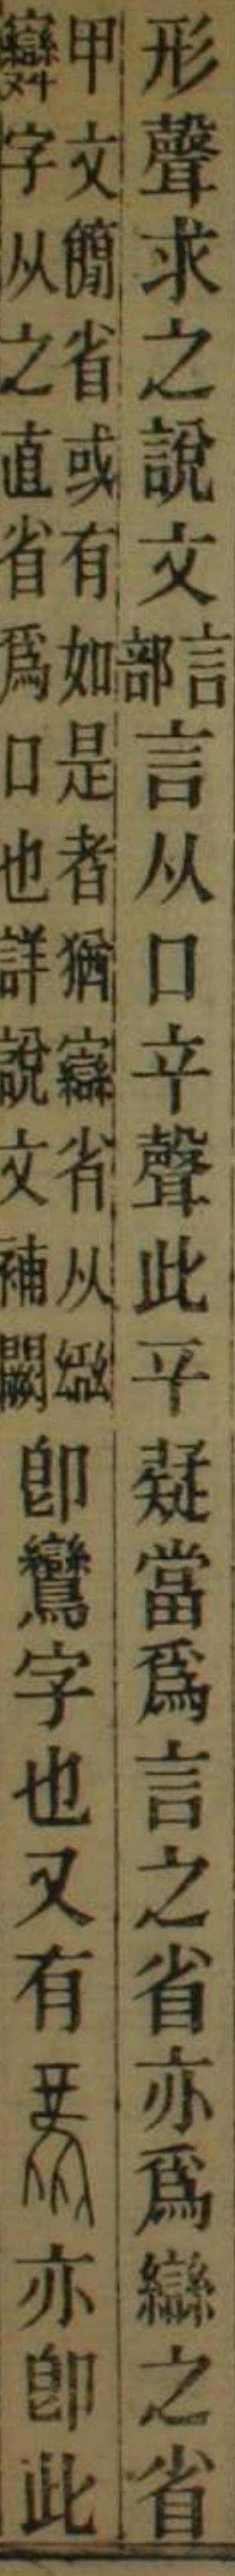 形聲求之說文言部言从口䇂聲此䇂疑當爲言之省亦爲䜌之省
甲文簡省或有如是者猶省从
字从之直省爲口也詳說文補闕
卽鸞字也又有亦卽此